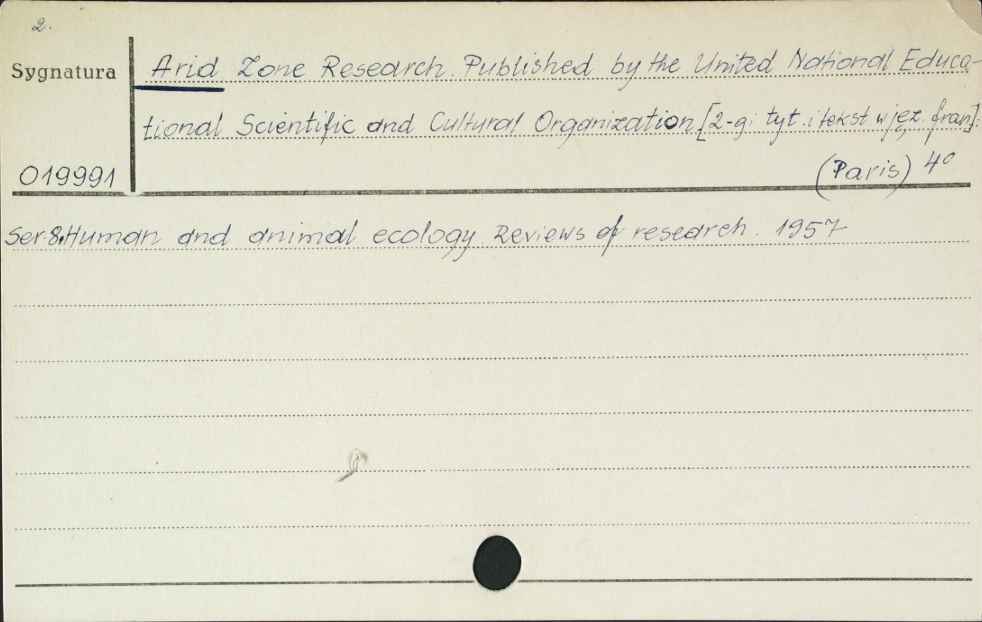 2.
Sygnatura
Arid Zone Research. Published by the United National Educa-
tional Scientific and Cultural Organization [2-gi tyt. i tekst w jęz. fran].
019991
(Paris) 4°
Ser. 8. Human and animal ecology Reviews of research. 1957